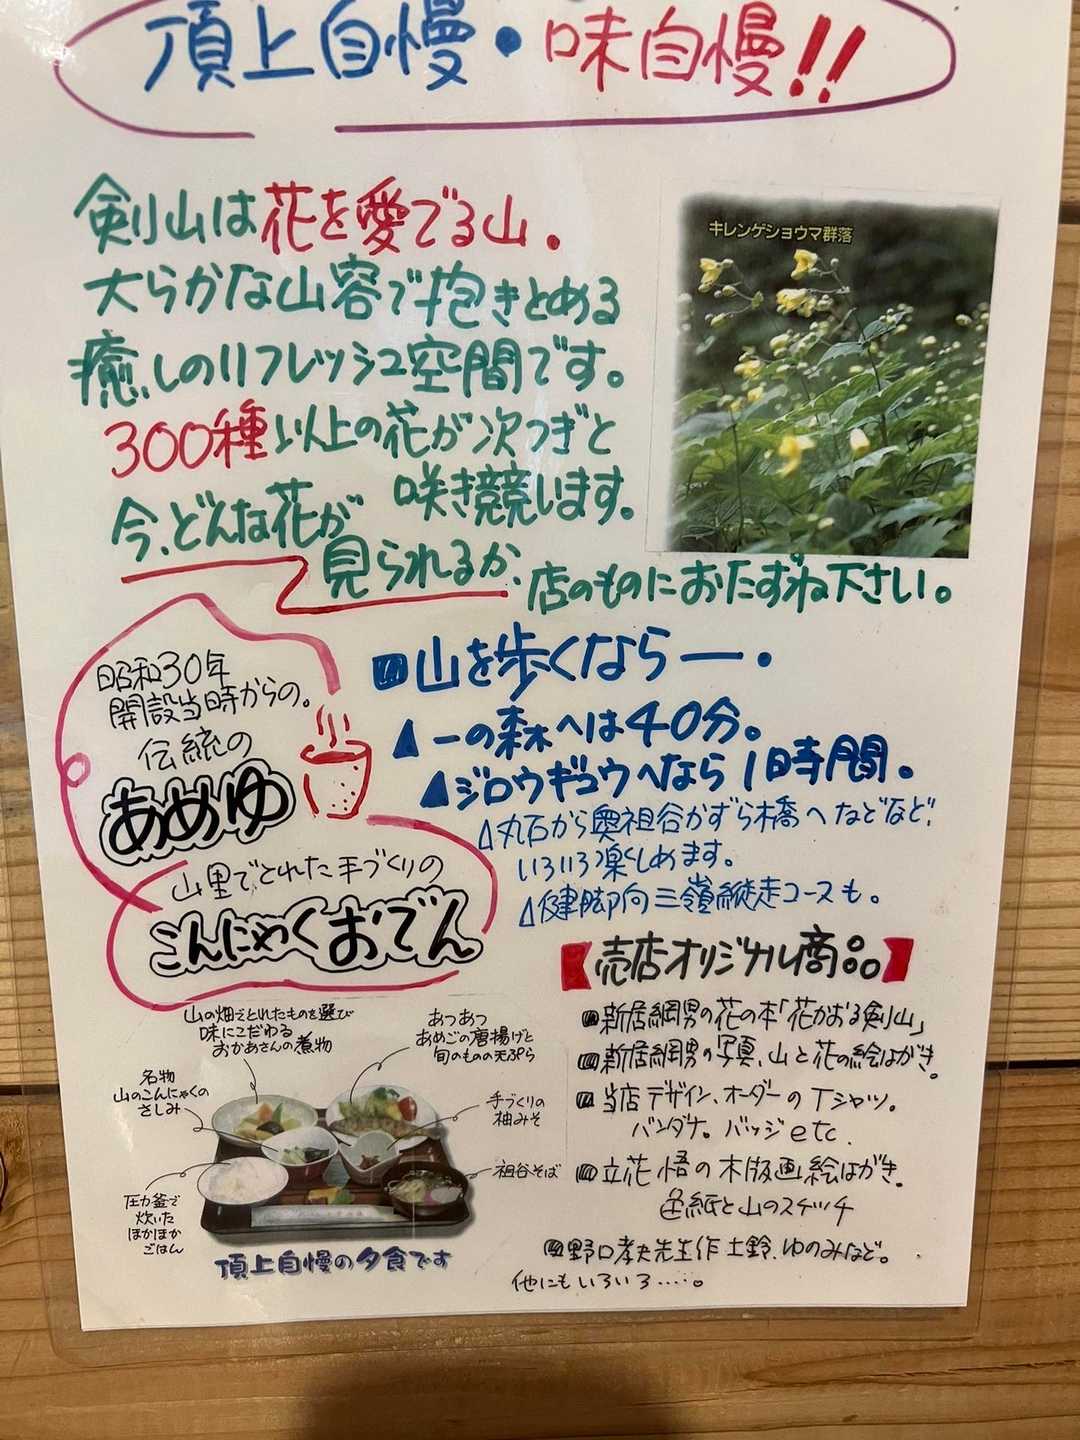 頂上自慢・味自慢!!
剣山は花を愛でる山。
大らかな山容で抱きとめる
癒しのリフレッシュ空間です。
300種以上の花が次つぎと
咲き競います。
今、どんな花が
見られるか、店のものにおたずね下さい。
キレンゲショウマ群落
昭和30年
開設当時からの。
伝統の
あめゆ
山里でとれた手づくりの
こんにゃくおでん
山を歩くなら―・
一の森へは40分。
ジロウギュウへなら1時間。
丸石から奥祖谷かずら橋へなどなど、
いろいろ楽しめます。
健脚向三嶺縦走コースも。
売店オリジナル商品
新居綱男の花の本「花かおる剣山」
新居綱男の写真、山と花の絵はがき。
当店デザイン、オーダーのTシャツ。
バンダナ。バッジetc.
立花悟の木版画絵はがき。
色紙と山のスケッチ
野口孝夫先生作土鈴、ゆのみなど。
他にもいろいろ……。
山の畑でとれたものを選び
味にこだわる
おかあさんの煮物
あつあつ
あめごの唐揚げと
旬のものの天ぷら
名物
山のこんにゃくの
さしみ
手づくりの
柚みそ
祖谷そば
圧力釜で
炊いた
ほかほか
ごはん
頂上自慢の夕食です